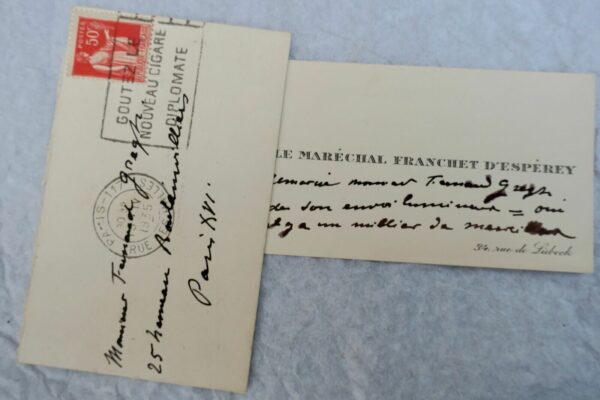 POSTES
50c
GOUTEZ LE
NOUVEAU CIGARE
DIPLOMATE
1935
Monsieur Fernand Gregh
25 hameau Boulainvilliers
Paris XVI.
LE MARÉCHAL FRANCHET D'ESPÉREY
remercie monsieur Fernand Gregh
de son envoi lumineux = oui
il y a un millier de
34, rue de Lubeck